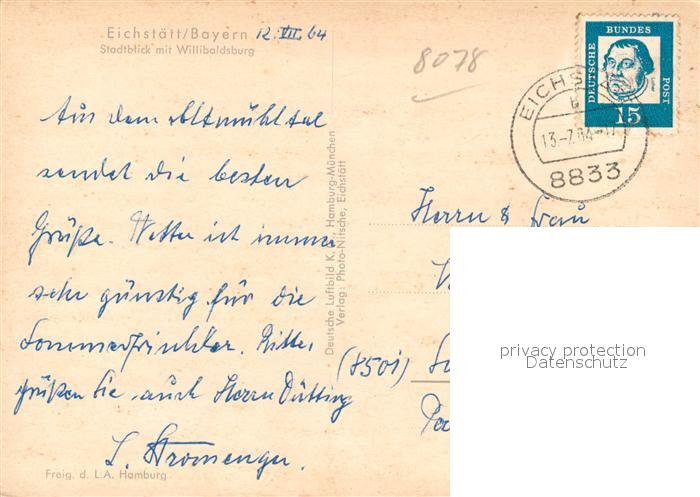 Eichstätt/Bayern 12.VII.64
Stadtblick mit Willibaldsburg
8078
DEUTSCHE BUNDES POST
15
EICHST
13.-7.64-17
8833
Aus dem Altmühltal
sendet die besten
Grüße. Wetter ist immer
sehr günstig für die
Sommerfrischler. Bitte,
grüßen Sie auch Herrn Dütting
L. Stromenger.
Deutsche Luftbild K. Hamburg-München
Verlag: Photo-Nitsche, Eichstätt
Herrn & Frau
(8501)
privacy protection
Datenschutz
Freig. d. L.A. Hamburg